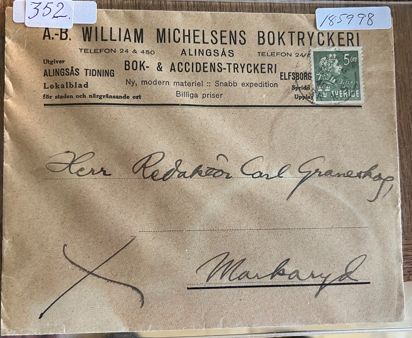 352.
185998
A.-B. WILLIAM MICHELSENS BOKTRYCKERI
TELEFON 24 & 450 ALINGSÅS TELEFON 24/
Utgiver
ALINGSÅS TIDNING
Lokalblad
för staden och närgränsande ort
BOK- & ACCIDENS-TRYCKERI
Ny, modern materiel :: Snabb expedition
Billiga priser
ELFSBORG
Spridd
Upplag
5 öre
SVERIGE
Herr Redaktör Carl Graneskog,
Markaryd